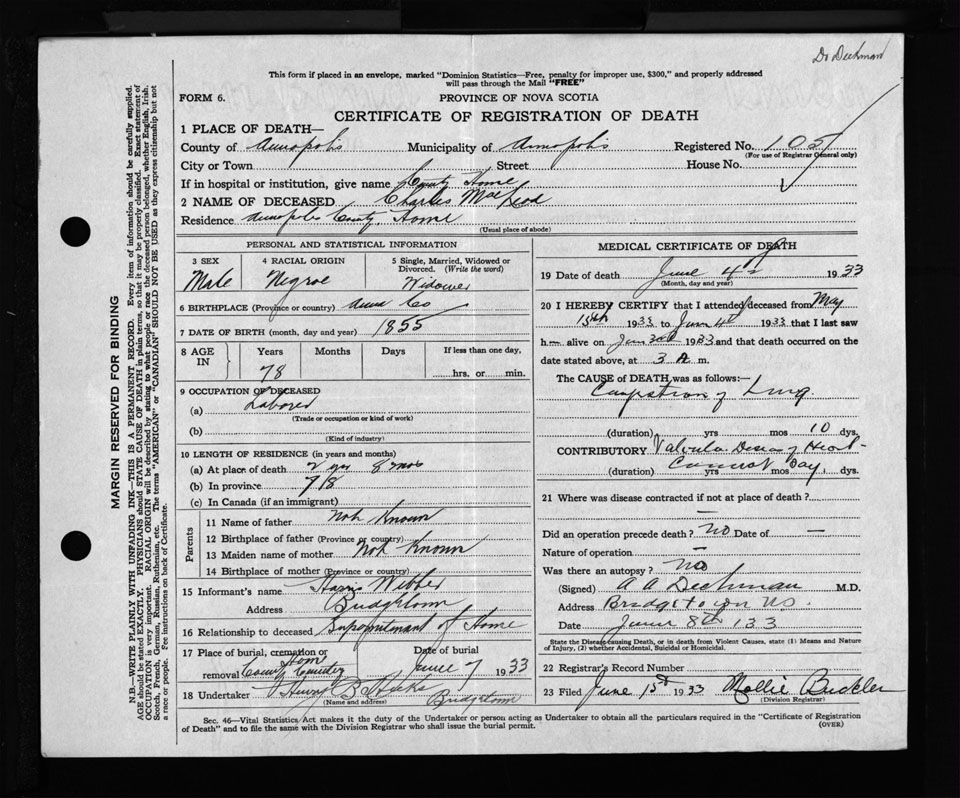 Dr Deckman
This form if placed in an envelope, marked "Dominion Statistics—Free, penalty for improper use, $300," and properly addressed
will pass through the Mail "FREE"
FORM 6.
PROVINCE OF NOVA SCOTIA
CERTIFICATE OF REGISTRATION OF DEATH
1 PLACE OF DEATH—
County of Annapolis Municipality of Annapolis Registered No. 105
(For use of Registrar General only)
City or Town Street House No.
If in hospital or institution, give name County Home
2 NAME OF DECEASED Charles MacLeod
Residence Annapolis County Home
(Usual place of abode)
PERSONAL AND STATISTICAL INFORMATION
3 SEX 4 RACIAL ORIGIN 5 Single, Married, Widowed or
Divorced. (Write the word)
Male Negroe Widower
6 BIRTHPLACE (Province or country) Anna Co
7 DATE OF BIRTH (month, day and year) 1855
8 AGE IN Years Months Days If less than one day,
78 hrs. or min.
9 OCCUPATION OF DECEASED
(a) Laborer
(Trade or occupation or kind of work)
(b)
(Kind of industry)
10 LENGTH OF RESIDENCE (in years and months)
(a) At place of death 2 yrs 8 mos
(b) In province 78
(c) In Canada (if an immigrant)
Parents
11 Name of father Not Known
12 Birthplace of father (Province or country)
13 Maiden name of mother Not Known
14 Birthplace of mother (Province or country)
15 Informant's name Harris
Address Bridgetown
16 Relationship to deceased of Home
17 Place of burial, cremation or Date of burial
removal County Home Cemetery June 7 1933
18 Undertaker Henry B Hicks
(Name and address) Bridgetown
MEDICAL CERTIFICATE OF DEATH
19 Date of death June 4th 1933
(Month, day and year)
20 I HEREBY CERTIFY that I attended deceased from May
15th 1933 to June 4th 1933 that I last saw
h alive on June 3rd 1933 and that death occurred on the
date stated above, at 3 A m.
The CAUSE OF DEATH was as follows:—
Congestion of Lung
(duration) yrs mos 10 dys.
CONTRIBUTORY Valvular Disease of Heart
(duration) Cannot Say yrs mos dys.
21 Where was disease contracted if not at place of death?
—
Did an operation precede death? No Date of —
Nature of operation —
Was there an autopsy? No
(Signed) A A Deckman M.D.
Address Bridgetown NS.
Date June 8th 133
State the Disease causing Death, or in death from Violent Causes, state (1) Means and Nature
of Injury, (2) whether Accidental, Suicidal or Homicidal.
22 Registrar's Record Number
23 Filed June 15th 1933 Mollie Buckler
(Division Registrar)
Sec. 46—Vital Statistics Act makes it the duty of the Undertaker or person acting as Undertaker to obtain all the particulars required in the "Certificate of Registration
of Death" and to file the same with the Division Registrar who shall issue the burial permit.
(OVER)
MARGIN RESERVED FOR BINDING
N.B.—WRITE PLAINLY WITH UNFADING INK—THIS IS A PERMANENT RECORD. Every item of information should be carefully supplied.
AGE should be stated EXACTLY. PHYSICIANS should STATE CAUSE OF DEATH in plain terms, so that it may be properly classified. Exact statement of
OCCUPATION is very important. RACIAL ORIGIN will be described by stating to what people or race the deceased person belonged, whether English, Irish,
Scotch, French, German, Russian, Ruthenian, etc. The terms "AMERICAN" or "CANADIAN" SHOULD NOT BE USED as they express citizenship but not
a race or people. Fee instructions on back of Certificate.